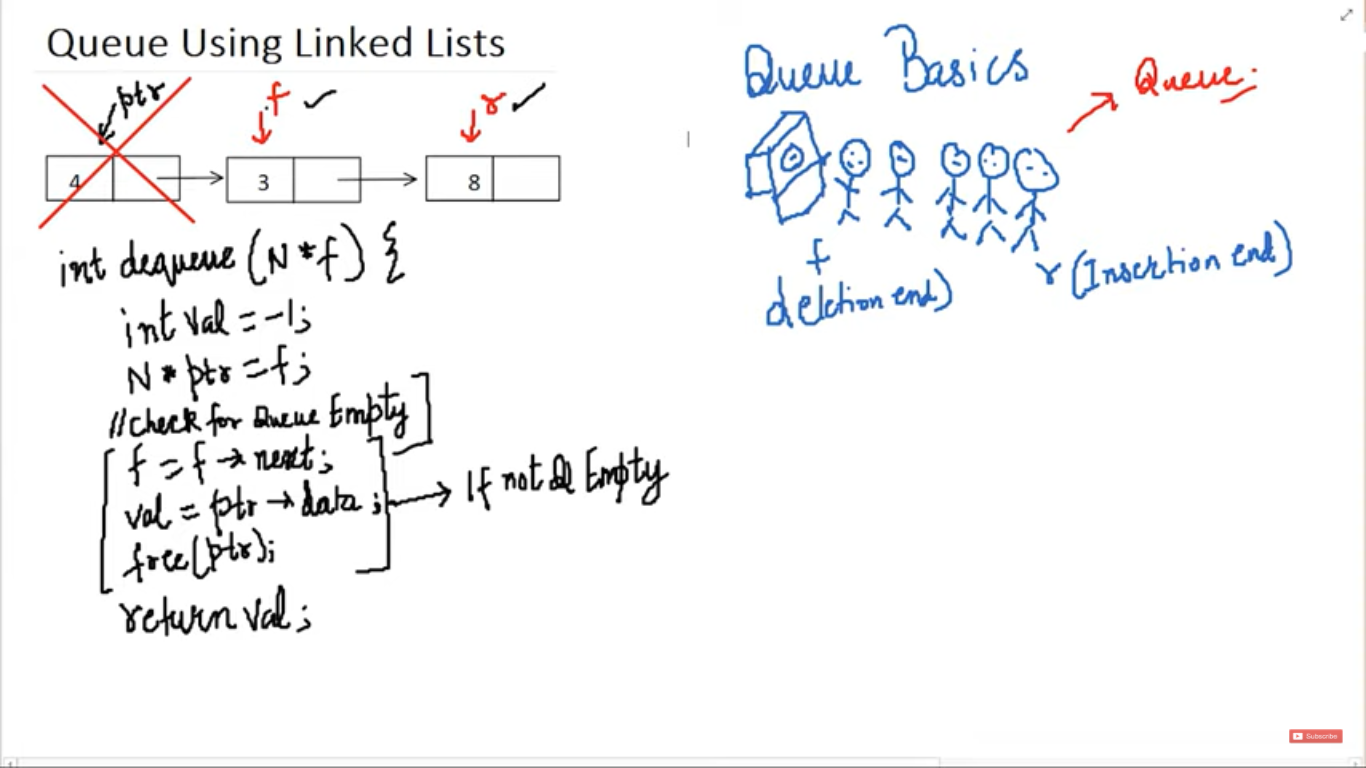 Queue Using Linked Lists
ptr
f
r
4
3
8
int dequeue (N *f) {
int val = -1;
N * ptr = f;
//check for Queue Empty
f = f → next;
val = ptr → data;
free(ptr);
return val;
If not Q Empty
Queue Basics
Queue:
f
deletion end)
r (Insertion end)
Subscribe